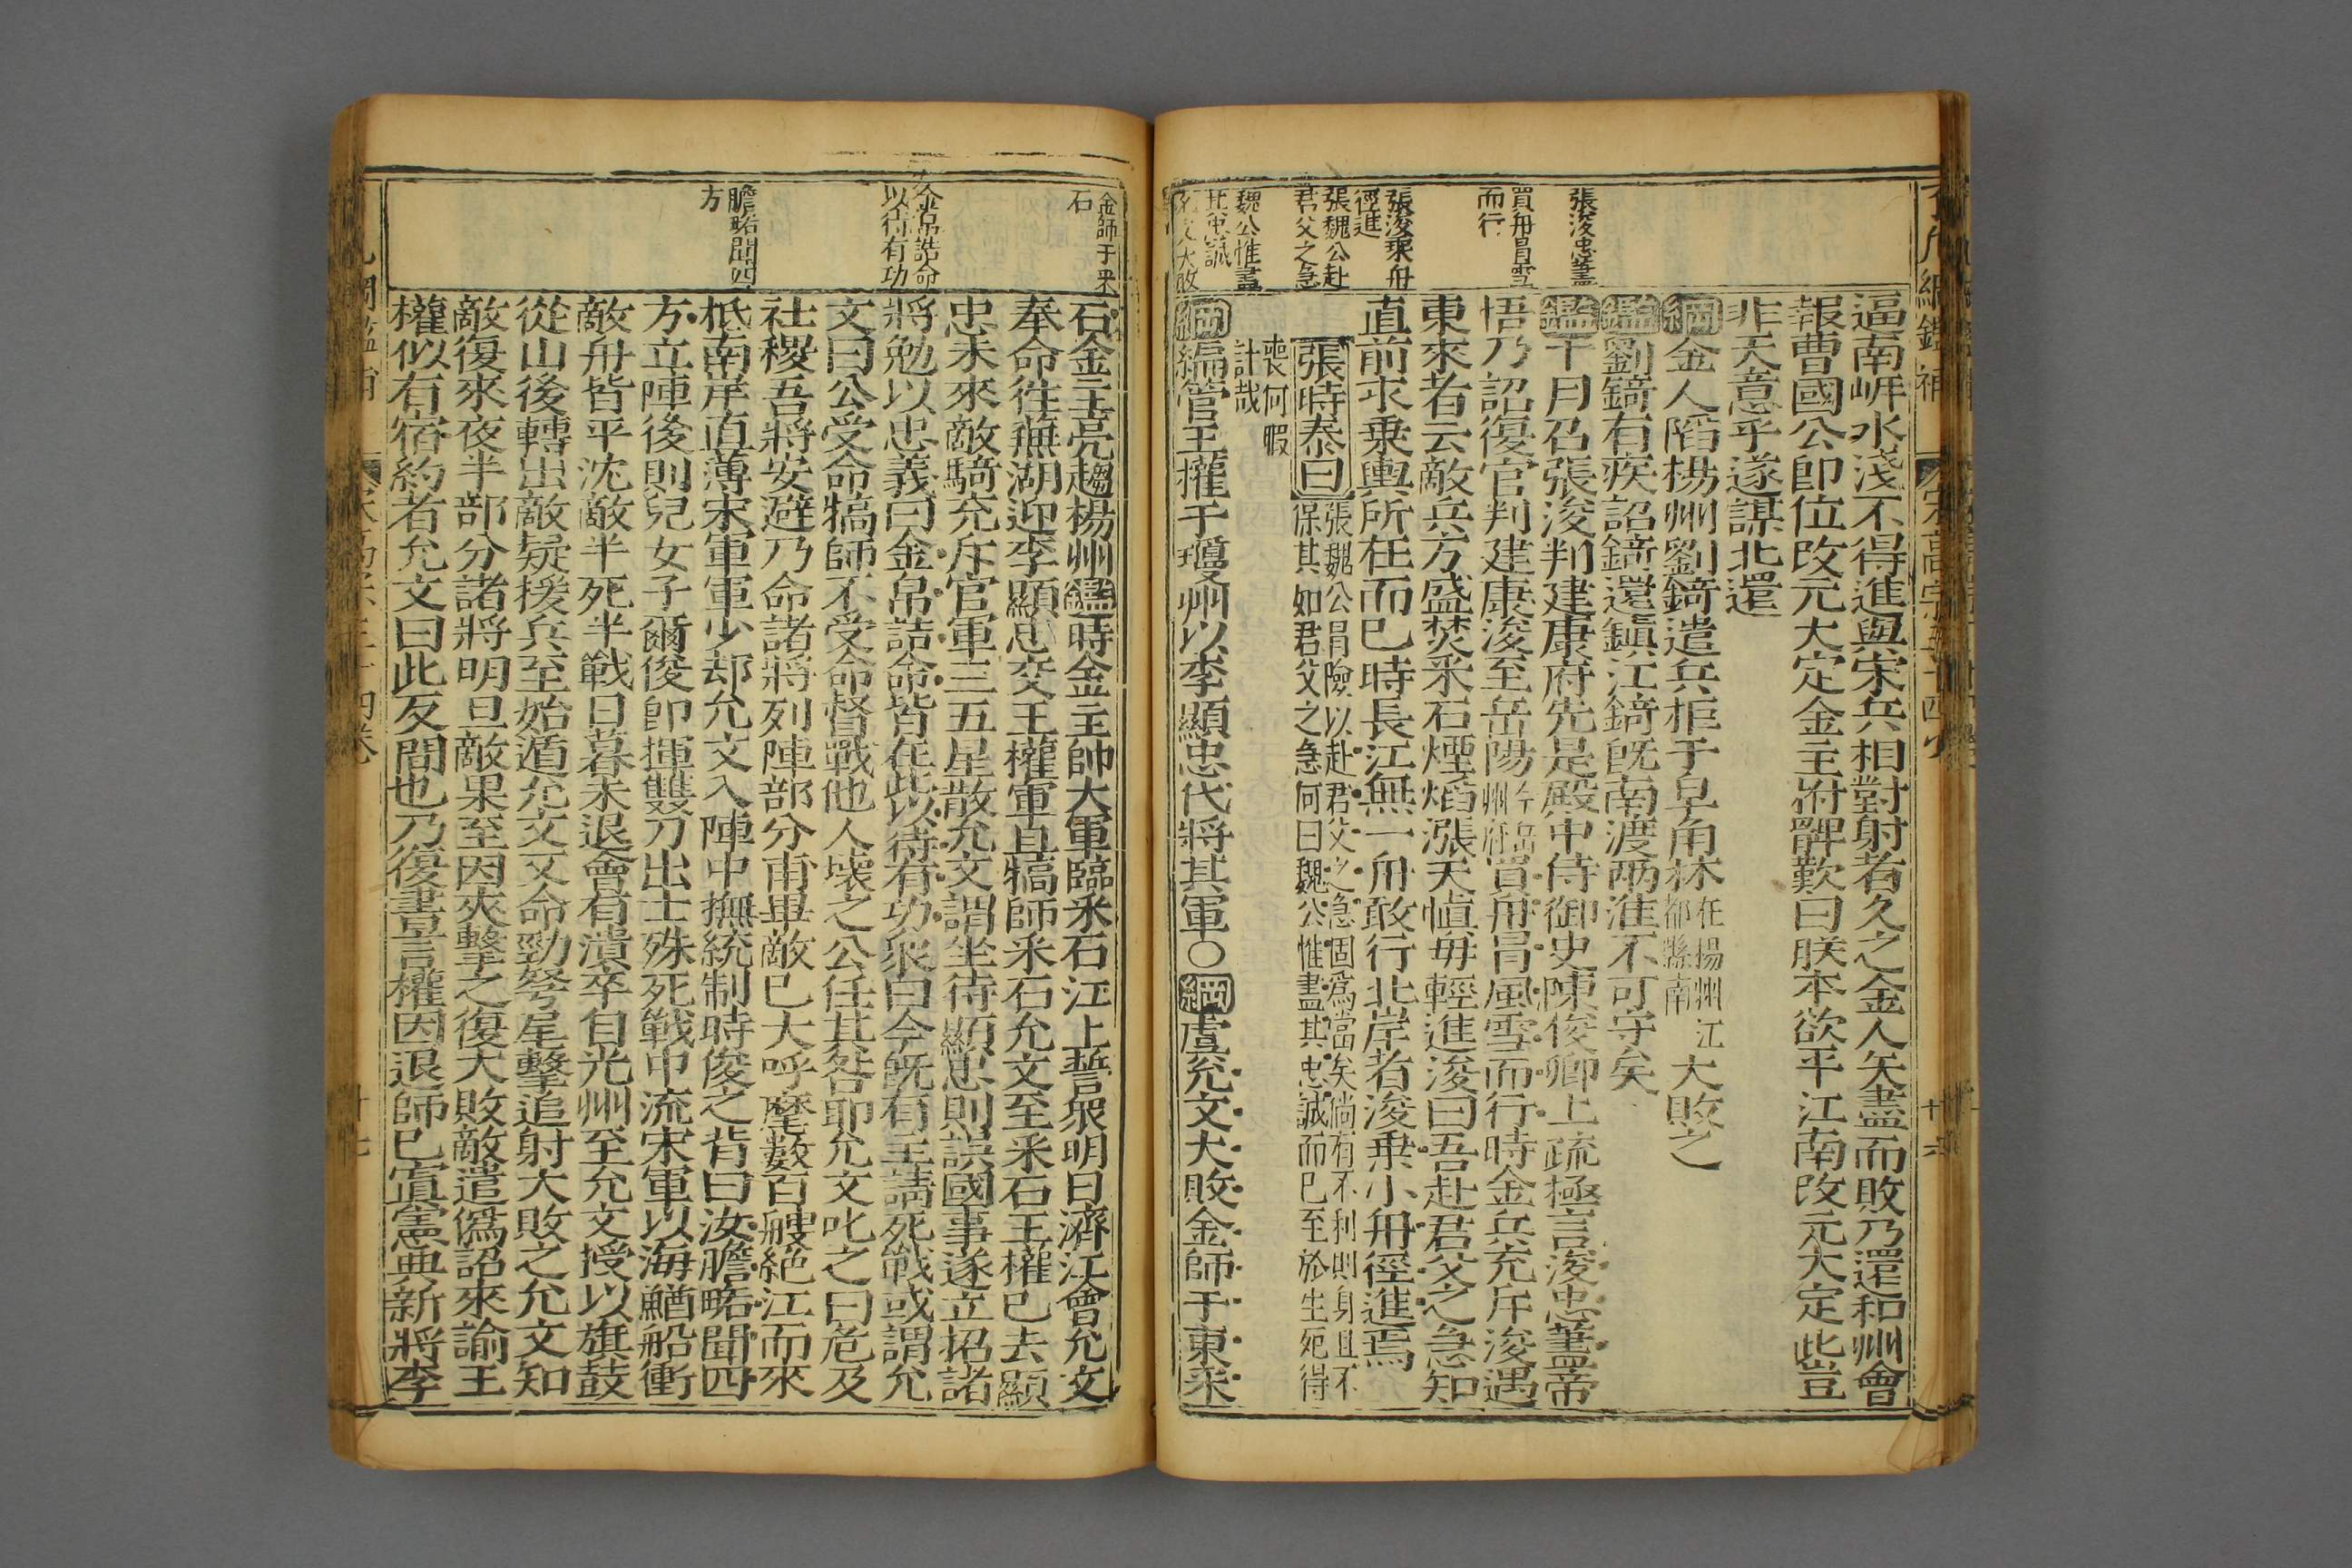 逼南岸水淺不得進與宋兵相對射者久之金人矢盡而敗乃還和州會
報曹國公卽位改元大定金主拊髀歎曰朕本欲平江南改元大定此豈
非天意乎遂謀北還
綱金人陷楊州劉錡遣兵拒于皂角林在揚州江都縣南大敗之
鑑劉錡有疾詔錡還鎭江錡旣南渡兩淮不可守矣
鑑十月召張浚判建康府先是殿中侍御史陳俊卿上疏極言浚忠藎帝
悟乃詔復官判建康浚至岳陽今岳州府買舟冐風雪而行時金兵充斥浚遇
東來者云敵兵方盛焚釆石煙熖漲天愼毋輕進浚曰吾赴君父之急知
直前求乗輿所在而已時長江無一舟敢行北岸者浚乗小舟徑進焉
張時泰曰張魏公冐險以赴君父之急固爲當矣倘有不利則身且不
保其如君父之急何曰魏公惟盡其忠誠而已至於生死得
喪何暇
計哉
綱編管王權于瓊州以李顯忠代將其軍○綱虞允文大敗金師于東釆
張浚忠藎
買舟冐雪
而行
張浚乗舟
徑進
張魏公赴
君父之急
魏公惟盡
其忠誠
允文大敗
石金主亮趨楊州鑑時金主帥大軍臨釆石江上誓衆明日濟江會允文
奉命往蕪湖迎李顯忠交王權軍且犒師釆石允文至釆石王權已去顯
忠未來敵騎充斥官軍三五星散允文謂坐待顯忠則誤國事遂立招諸
將勉以忠義曰金帛誥命皆在此以待有功衆曰今旣有主請死戰或謂允
文曰公受命犒師不受命督戰他人壞之公任其咎耶允文叱之曰危及
社稷吾將安避乃命諸將列陣部分甫畢敵已大呼麾數百艘絶江而來
柢南岸直薄宋軍軍少却允文入陣中撫統制時俊之背曰汝膽略聞四
方立陣後則兒女子爾俊卽揮雙刀出士殊死戰中流宋軍以海鰌船衝
敵舟皆平沈敵半死半戰日暮未退會有潰卒自光州至允文授以旗鼓
從山後轉出敵疑援兵至始遁允文又命勁弩尾擊追射大敗之允文知
敵復來夜半部分諸將明旦敵果至因夾擊之復大敗敵遣僞詔來諭王
權似有宿約者允文曰此反間也乃復書言權因退師已寘憲典新將李
金師于釆
石
金帛誥命
以待有功
膽略聞四
方